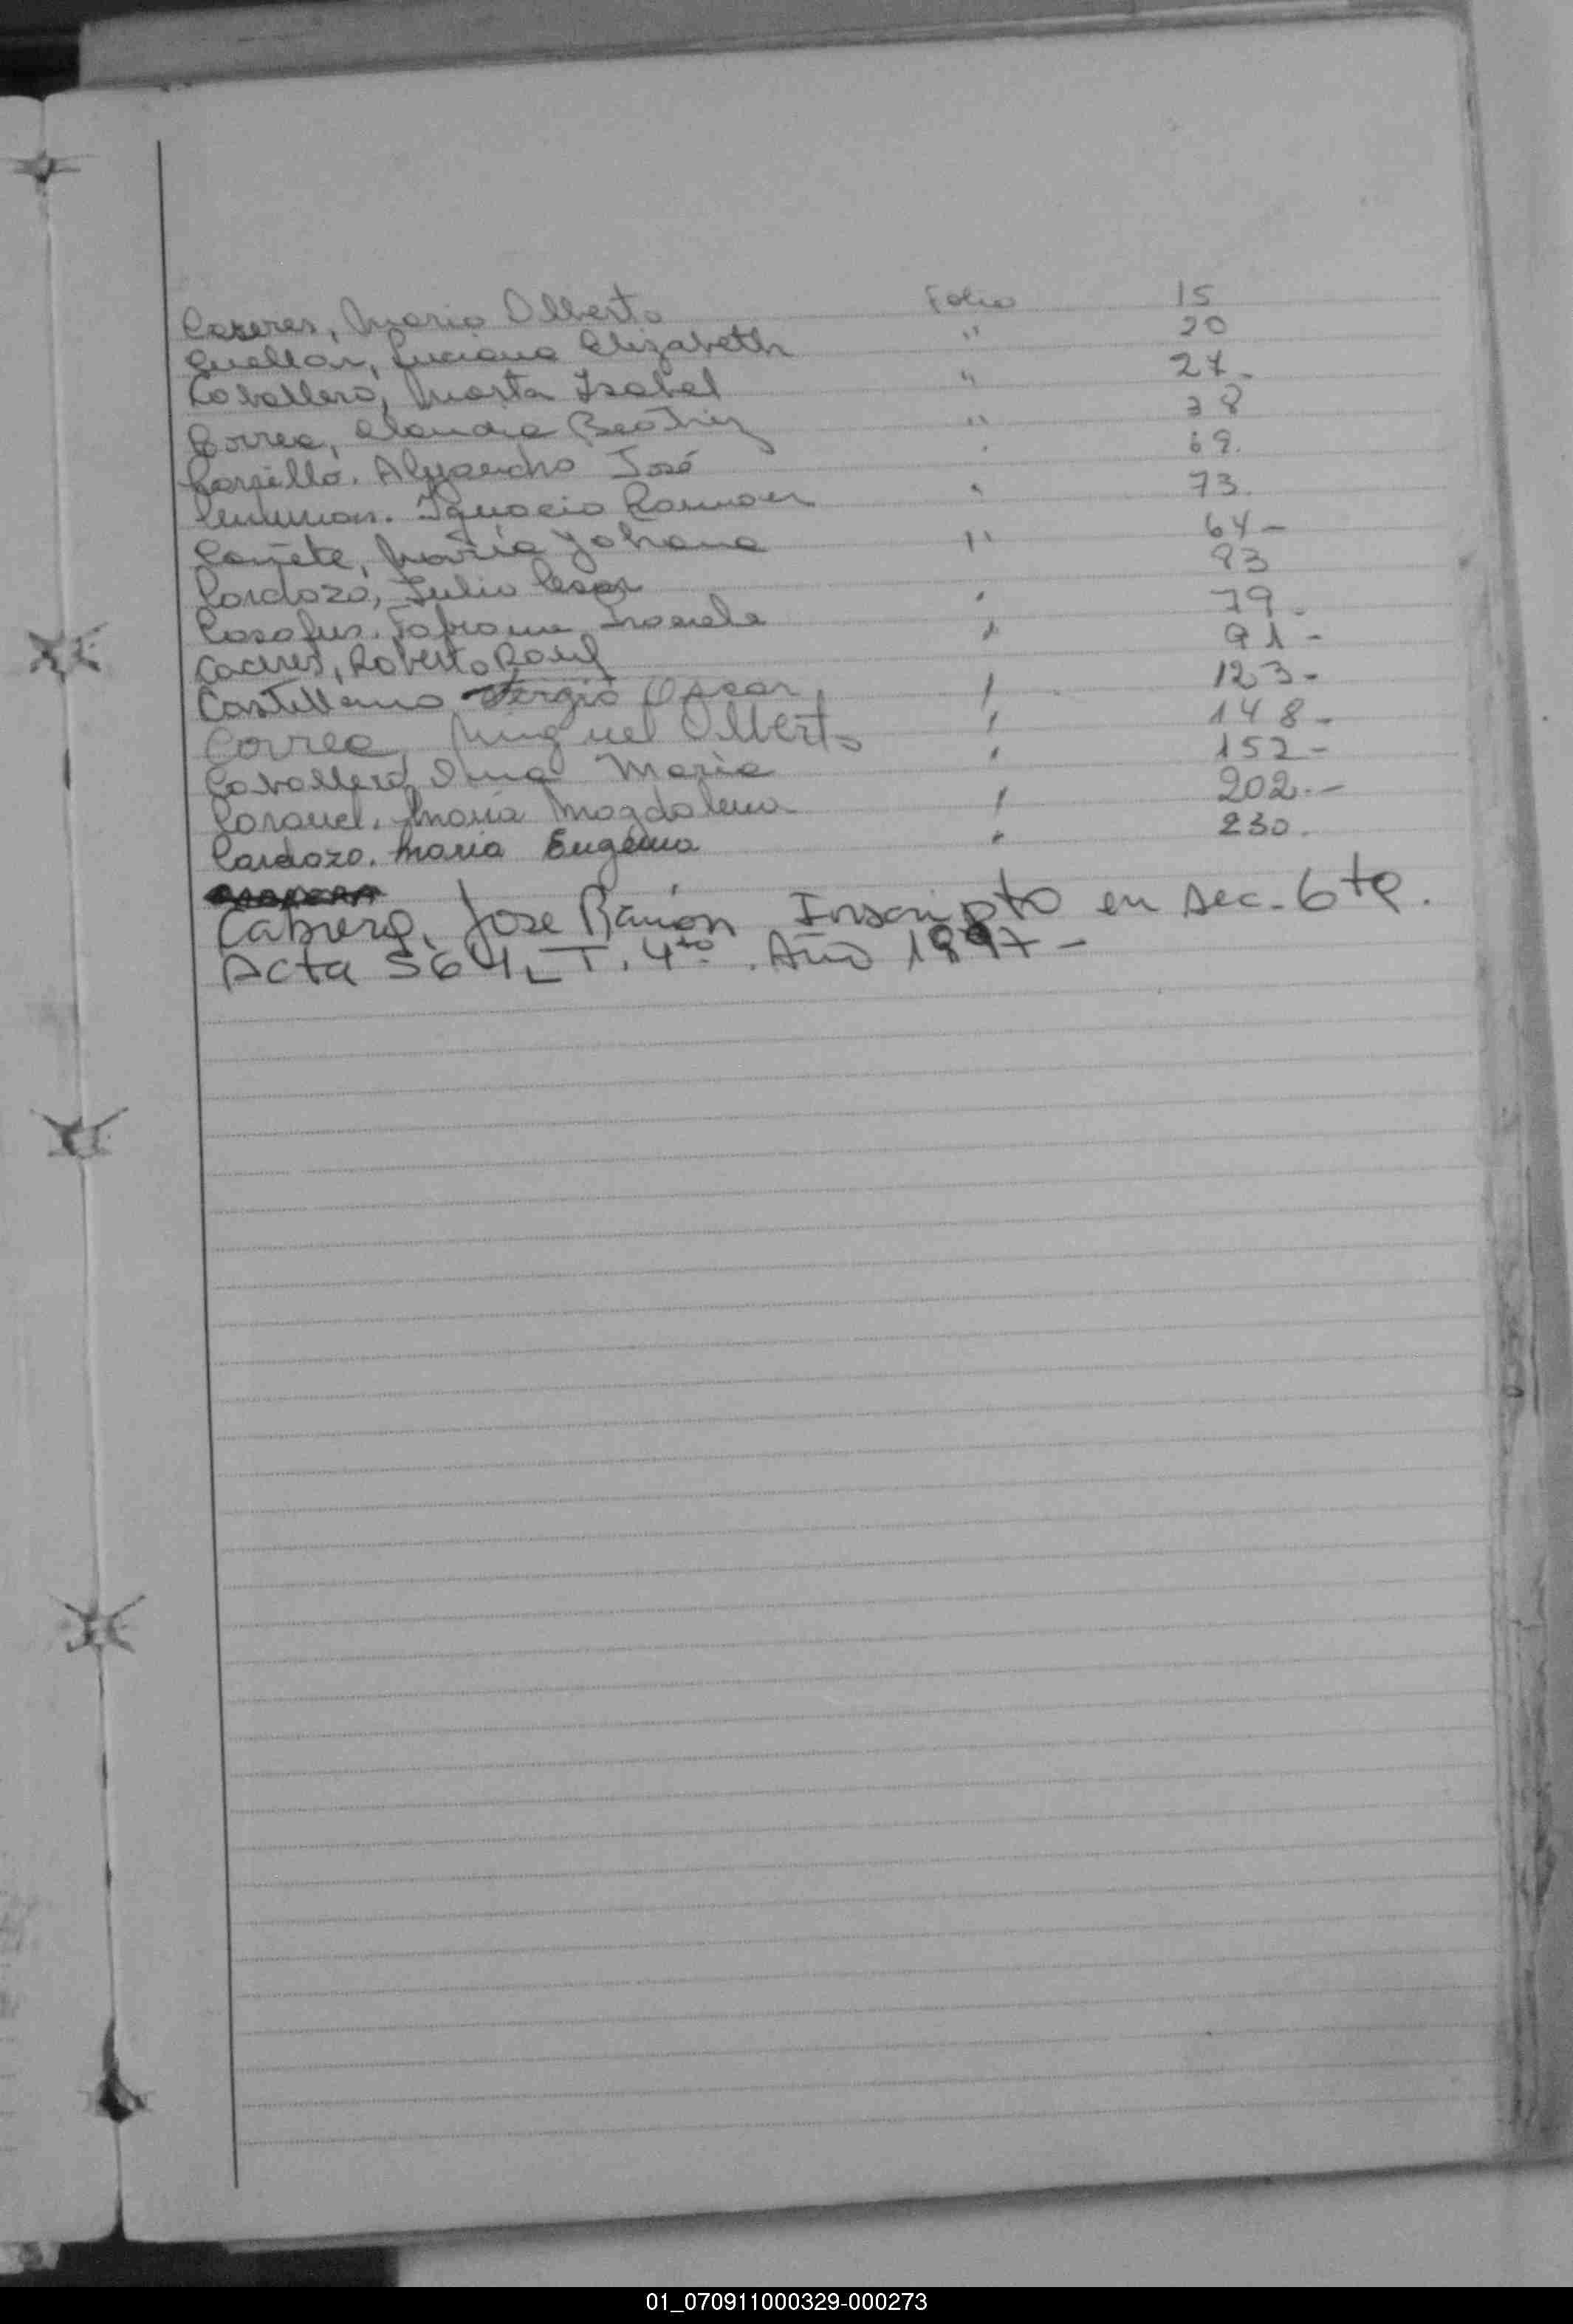 Caseres, Mario Alberto Folio 15
Cuellar, Luciana Elizabeth " 20
Caballero, Marta Isabel " 27-
Correa, Claudia Beatriz " 38
Alejandro José 69.
Ignacio Ramon " 73.
Cañete, María Yohana " 64-
Cardozo, Julio Cesar 83
" 79-
Caceres, Roberto Raul " 91-
Castellano Sergio Oscar, " 123-
Correa, Miguel Alberto " 148-
Caballero, Ana Maria " 152-
María Magdalena " 202.-
Cardozo. Maria Eugenia " 230.
Cabrera, Jose Ramón Inscripto en sec. 6ta.
Acta 564 T. 4to. Año 1997-
01_070911000329-000273